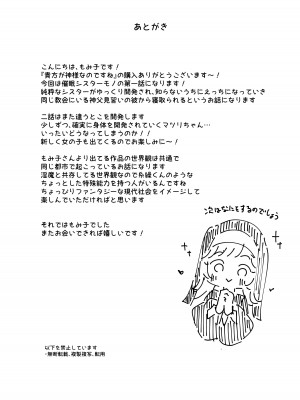 あとがき
こんにちは、もみ子です。
『貴方が神様なのですね』の購入ありがとうございます～！
今回は催眠シスターモノの第一話になります！
純粋なシスターがゆっくり開発され、知らないうちにえっちになっていき
同じ教会にいる神父見習いの彼から寝取られるというお話になります
二話はまた違うとこを開発します
少しずつ、確実に身体を開発されていくマツリちゃん…
いったいどうなってしまうのか！！
新しく女の子も出てくるのでお楽しみに～！
もみ子さんより出てる作品の世界観は共通で
同じ都市で起こっているお話になります
淫魔と共存してる世界観なので糸繰くんのような
ちょっとした特殊能力を持つ人がいるんですね
ちょっぴりファンタジーな現代社会をイメージして
楽しんでいただければと思います
それではもみ子でした
またお会いできれば嬉しいです！
次はなにをするのでしょう
以下を禁止しています
・無断転載、複製複写、転用